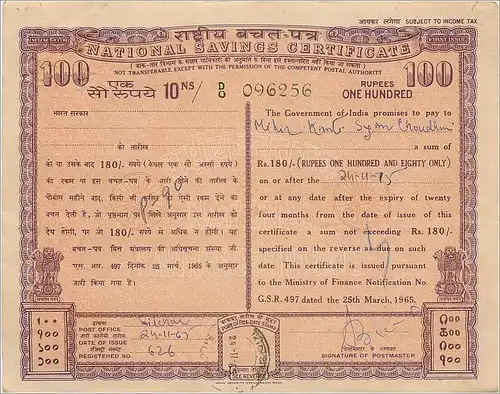 आयकर लगेगा SUBJECT TO INCOME TAX
राष्ट्रीय बचत-पत्र
FIRST ISSUE
NATIONAL SAVINGS CERTIFICATE
(डाक-तार विभाग के सक्षम प्राधिकारी की अनुमति के बिना इसे हस्तान्तरित नहीं किया जा सकता)
NOT TRANSFERABLE EXCEPT WITH THE PERMISSION OF THE COMPETENT POSTAL AUTHORITY
100
एक
सौ रुपये
10 NS/ D/8 096256
RUPEES
ONE HUNDRED
100
भारत सरकार
को तारीख
को या उसके बाद 180/- रुपये (केवल एक सौ अस्सी रुपये)
की रकम या इस बचत-पत्र के जारी होने की तारीख के
चौबीस महीने बाद, किसी भी तारीख को ऐसी रकम देने का
वचन देती है, जो पृष्ठभाग पर लिखे अनुसार उस तारीख को
देय होगी, पर जो 180/- रुपये से अधिक न होगी। यह
बचत-पत्र वित्त मंत्रालय की अधिसूचना संख्या जी.
एस. आर. 497 दिनांक 25 मार्च, 1965 के अनुसार
जारी किया गया है।
The Government of India promises to pay to
Mihir Kanti Syam Choudhuri
a sum of
Rs.180/-(RUPEES ONE HUNDRED AND EIGHTY ONLY)
on or after the 24-11-75
or at any date after the expiry of twenty
four months from the date of issue of this
certificate a sum not exceeding Rs. 180/-
specified on the reverse as due on such
date. This certificate is issued pursuant
to the Ministry of Finance Notification No.
G.S.R. 497 dated the 25th March, 1965.
डाकघर
POST OFFICE Silchar
DATE OF ISSUE 24-11-65
रजिस्ट्री संख्या
REGISTERED NO. 626
POST OFFICE DATE STAMP
SEE REVERSE
पोस्टमास्टर के हस्ताक्षर
SIGNATURE OF POSTMASTER
१००
INDIA SECURITY PRESS